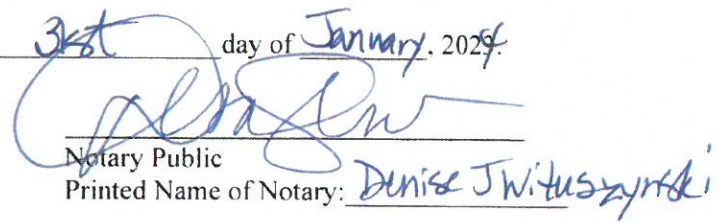 31st day of January, 2024.
Notary Public
Printed Name of Notary: Denise J Wituszynski